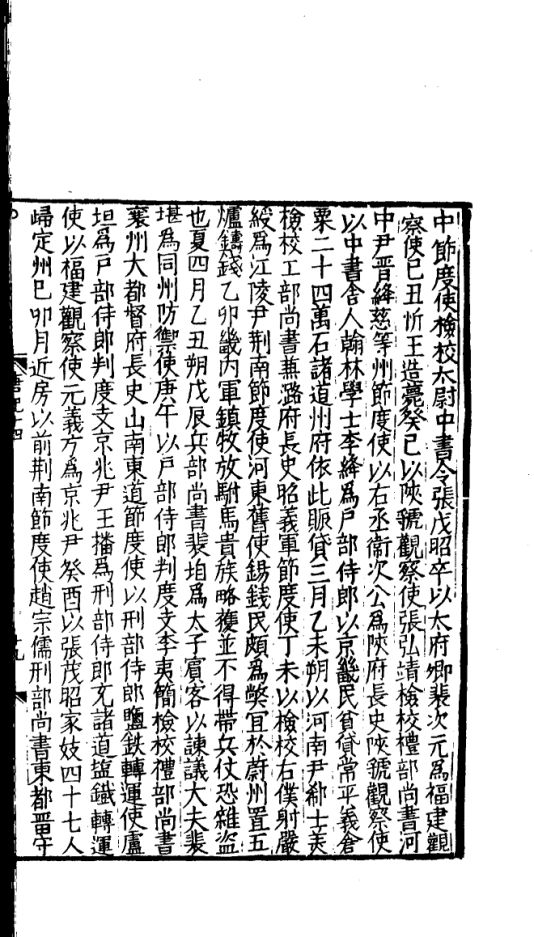 中節度使檢校太尉中書令張茂昭卒以太府卿裴次元爲福建觀
察使己丑忻王造薨癸巳以陝虢觀察使張弘靖檢校禮部尚書河
中尹晉絳慈等州節度使以右丞衞次公爲陝府長史陝虢觀察使
以中書舍人翰林學士李絳爲戶部侍郎以京畿民貧貸常平義倉
粟二十四萬石諸道州府依此賑貸三月乙未朔以河南尹郗士美
檢校工部尚書兼潞府長史昭義軍節度使丁未以檢校右僕射嚴
綬爲江陵尹荆南節度使河東舊使錫錢民頗爲弊宜於蔚州置五
爐鑄錢乙卯畿內軍鎮牧放駙馬貴族略獲並不得帶兵仗恐雜盜
也夏四月乙丑朔戊辰兵部尚書裴垍爲太子賓客以諫議大夫裴
堪爲同州防禦使庚午以戶部侍郎判度支李夷簡檢校禮部尚書
襄州大都督府長史山南東道節度使以刑部侍郎鹽鉄轉運使盧
坦爲戶部侍郎判度支京兆尹王播爲刑部侍郎充諸道塩鐵轉運
使以福建觀察使元義方爲京兆尹癸酉以張茂昭家妓四十七人
歸定州己卯月近房以前荆南節度使趙宗儒刑部尚書東都畱守